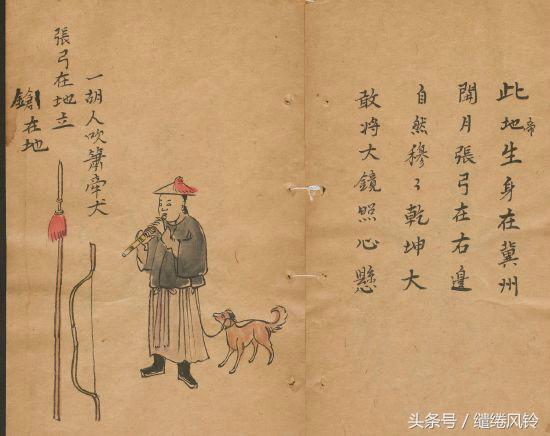 此地生身在冀州
帝
開月張弓在右邊
自然穆〻乾坤大
敢將大鏡照心懸
一胡人吹簫牽犬
張弓在地立
鎗在地
头条号 / 缱绻风铃